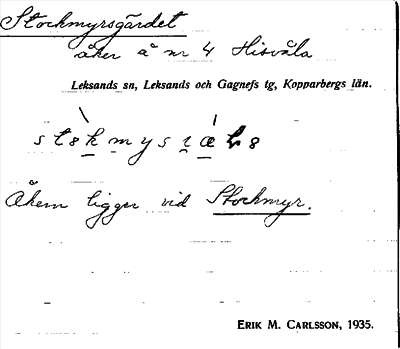 Stockmyrsgärdet
åker å nr 4 Hisvåla
Leksands sn, Leksands och Gagnefs tg, Kopparbergs län.
Åkern ligger vid Stockmyr.
ERIK M. CARLSSON, 1935.